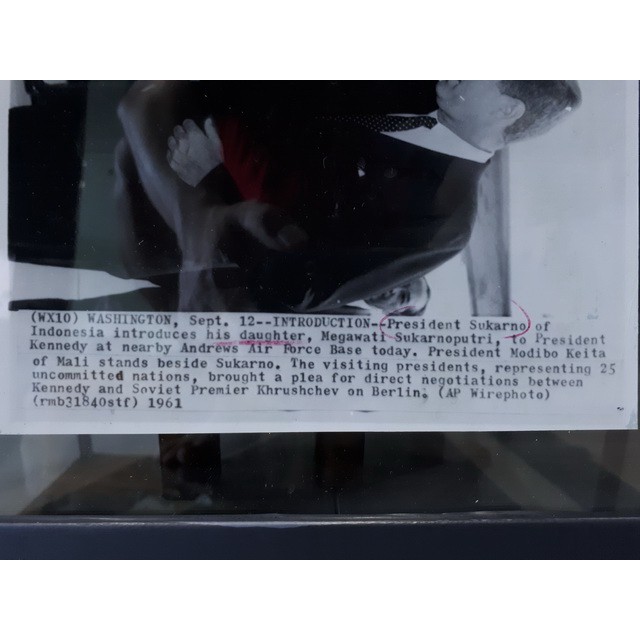 (WX10) WASHINGTON, Sept. 12--INTRODUCTION--President Sukarno of
Indonesia introduces his daughter, Megawati Sukarnoputri, to President
Kennedy at nearby Andrews Air Force Base today. President Modibo Keita
of Mali stands beside Sukarno. The visiting presidents, representing 25
uncommitted nations, brought a plea for direct negotiations between
Kennedy and Soviet Premier Khrushchev on Berlin. (AP Wirephoto)
(rmb31840stf) 1961